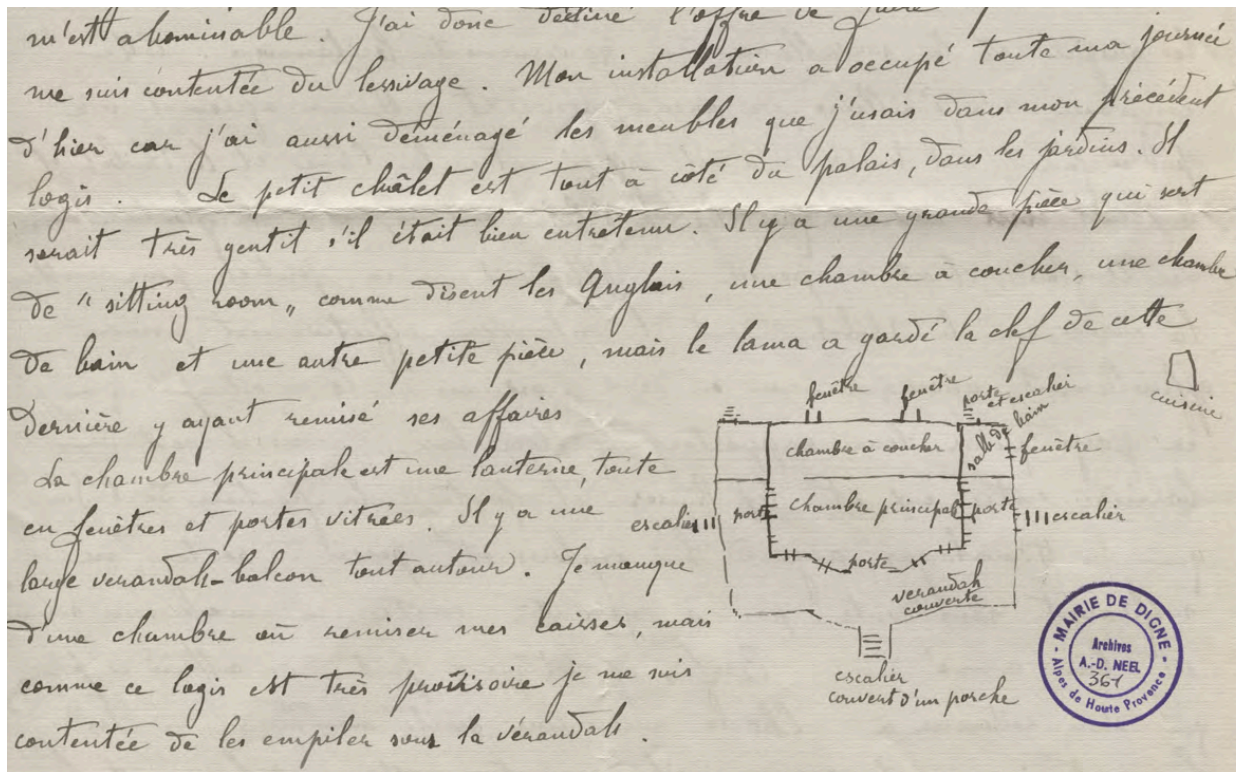 m'est abominable. J'ai donc décliné l'offre de faire
me suis contentée du lessivage. Mon installation a occupé toute ma journée
d'hier car j'ai aussi déménagé les meubles que j'usais dans mon précédent
logis. Le petit châlet est tout à côté du palais, dans les jardins. Il
serait très gentil s'il était bien entretenu. Il y a une grande pièce qui sert
de "sitting room" comme disent les Anglais, une chambre à coucher, une chambre
de bain et une autre petite pièce, mais le lama a gardé la clef de cette
dernière y ayant remisé ses affaires
La chambre principale est une lanterne, toute
en fenêtres et portes vitrées. Il y a une
large verandah-balcon tout autour. Je manque
d'une chambre où remiser mes caisses, mais
comme ce logis est très provisoire je me suis
contentée de les empiler sous la vérandah.
fenêtre
fenêtre
porte
et escalier
cuisine
chambre à coucher
salle de bain
fenêtre
escalier
porte
chambre principal
porte
escalier
porte
verandah
couverte
escalier
couvert d'un porche
MAIRIE DE DIGNE
Archives
A.-D. NEEL
361
Alpes de Haute Provence